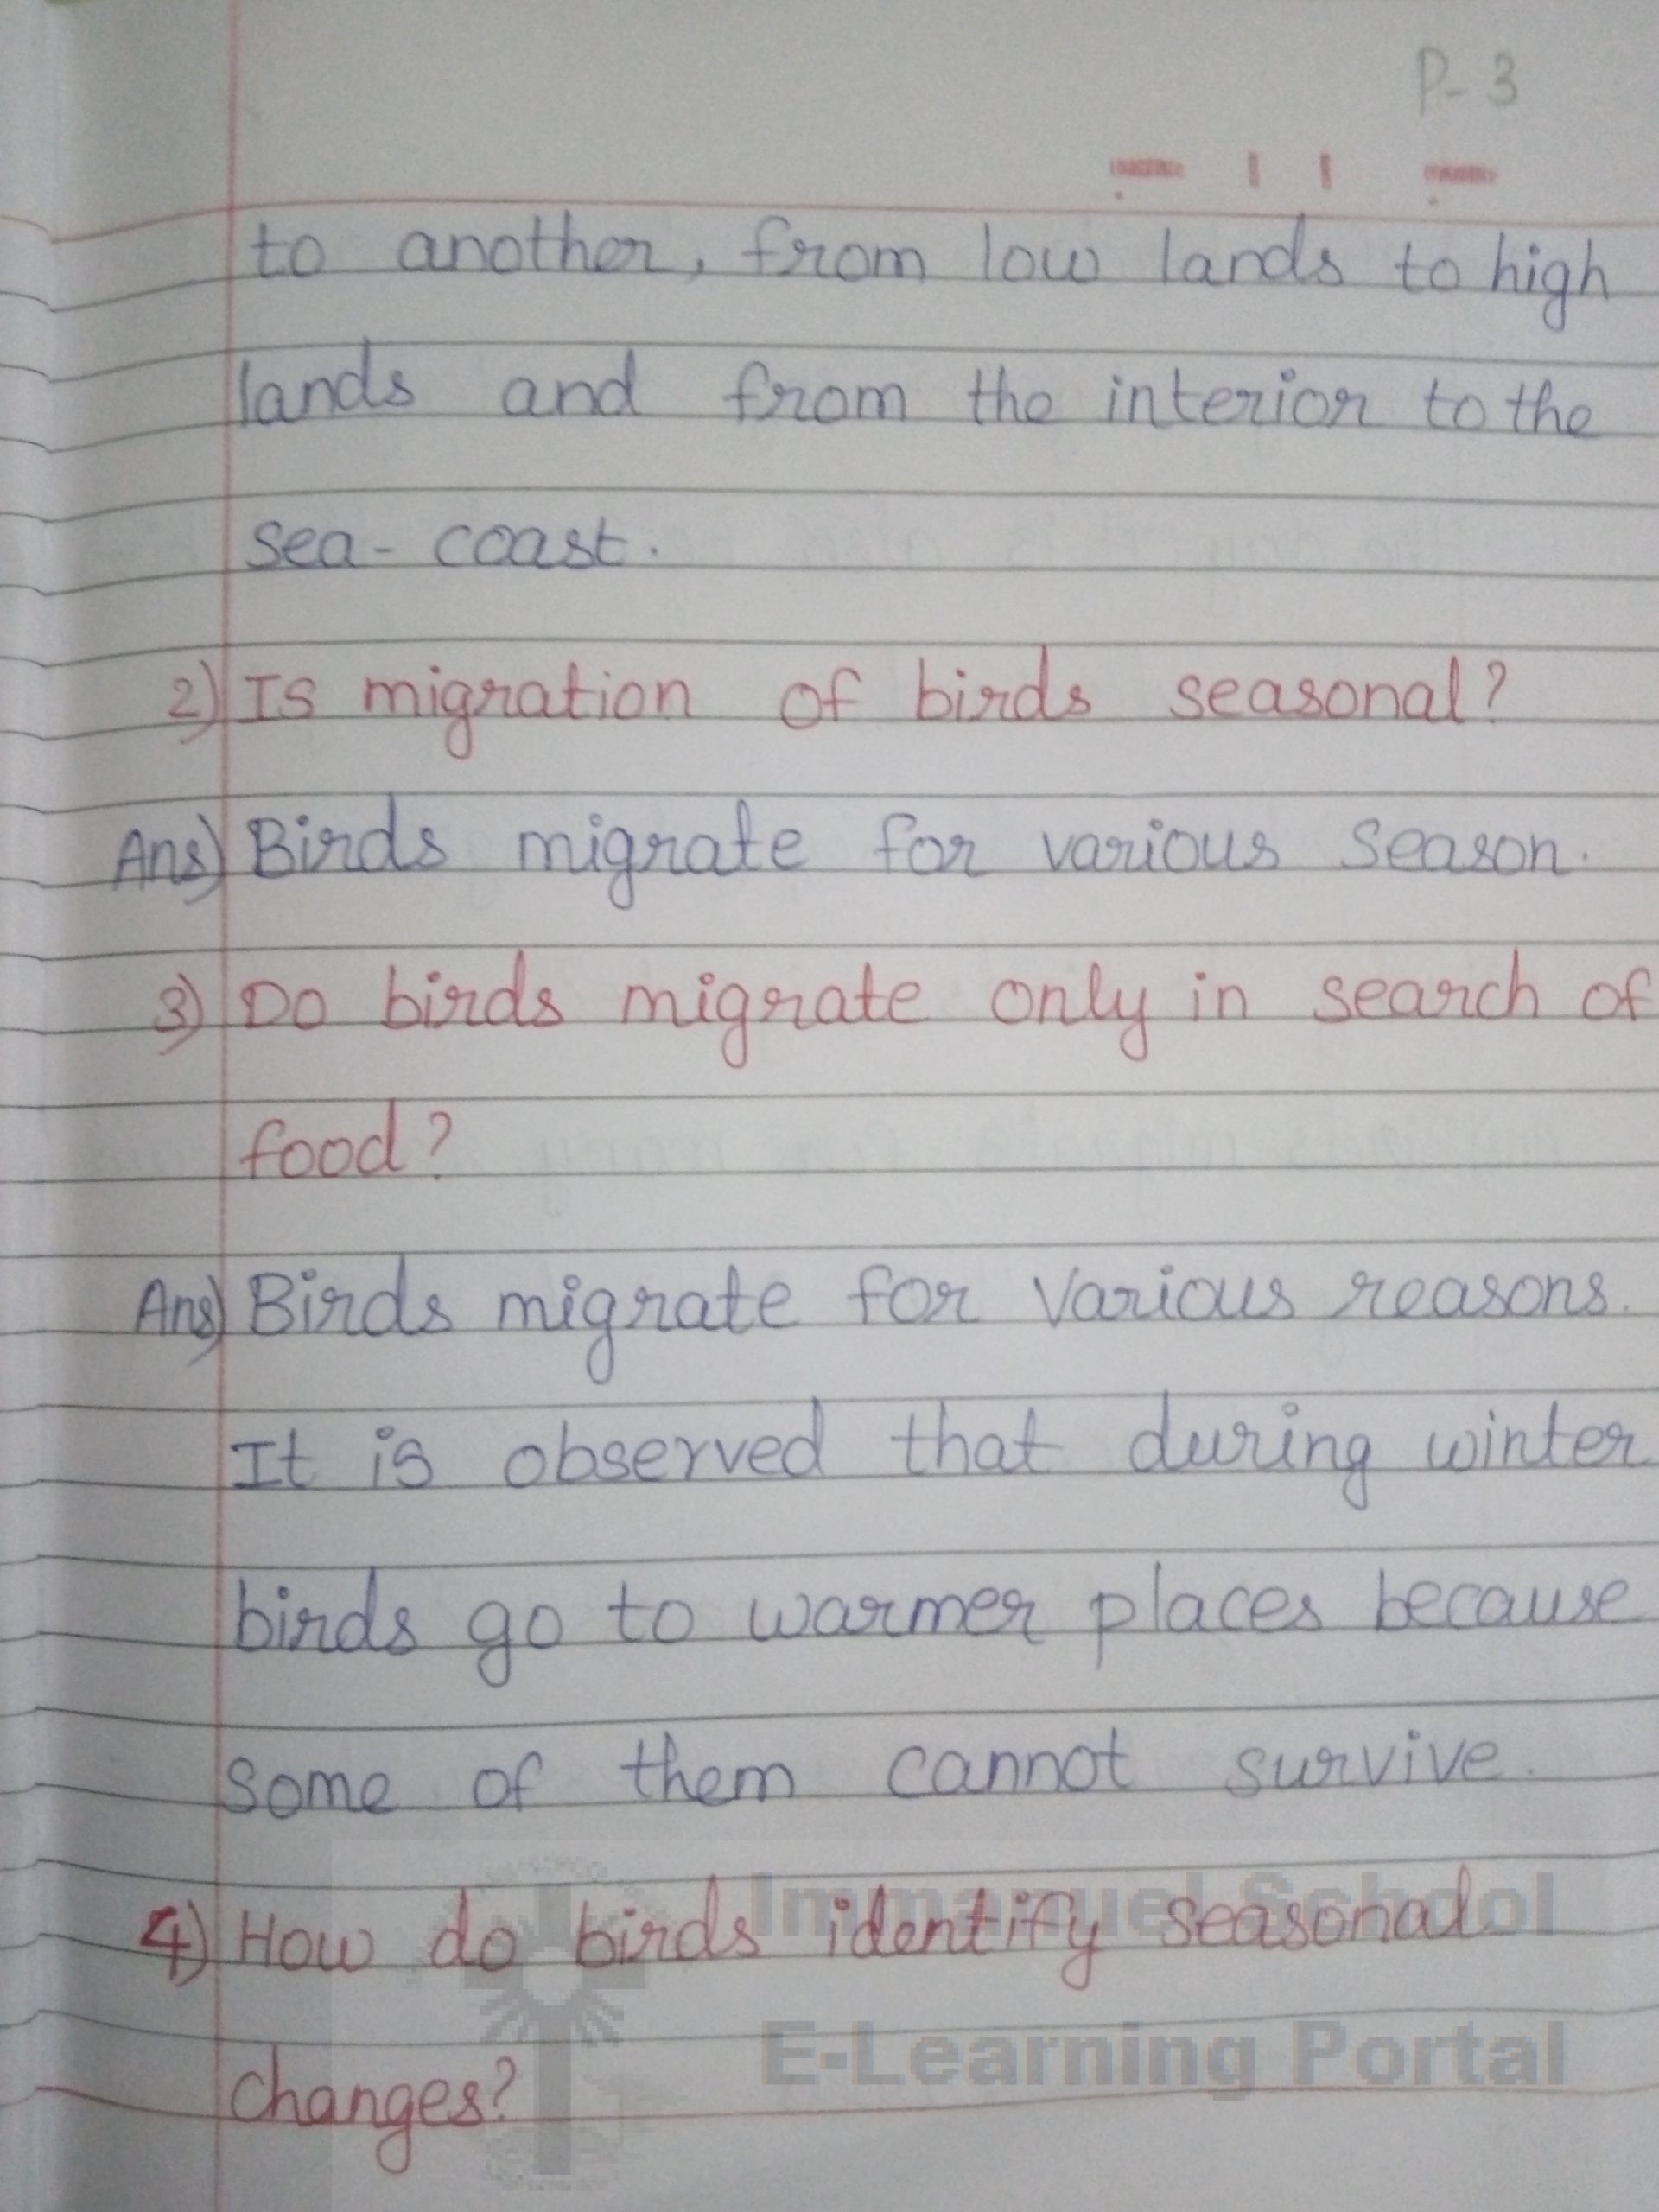 P-3
to another, from low lands to high
lands and from the interior to the
sea-coast.
2) Is migration of birds seasonal?
Ans) Birds migrate for various season.
3) Do birds migrate only in search of
food?
Ans) Birds migrate for various reasons.
It is observed that during winter
birds go to warmer places because
some of them cannot survive.
4) How do birds identify seasonal
changes?
Immanuel School
E-Learning Portal